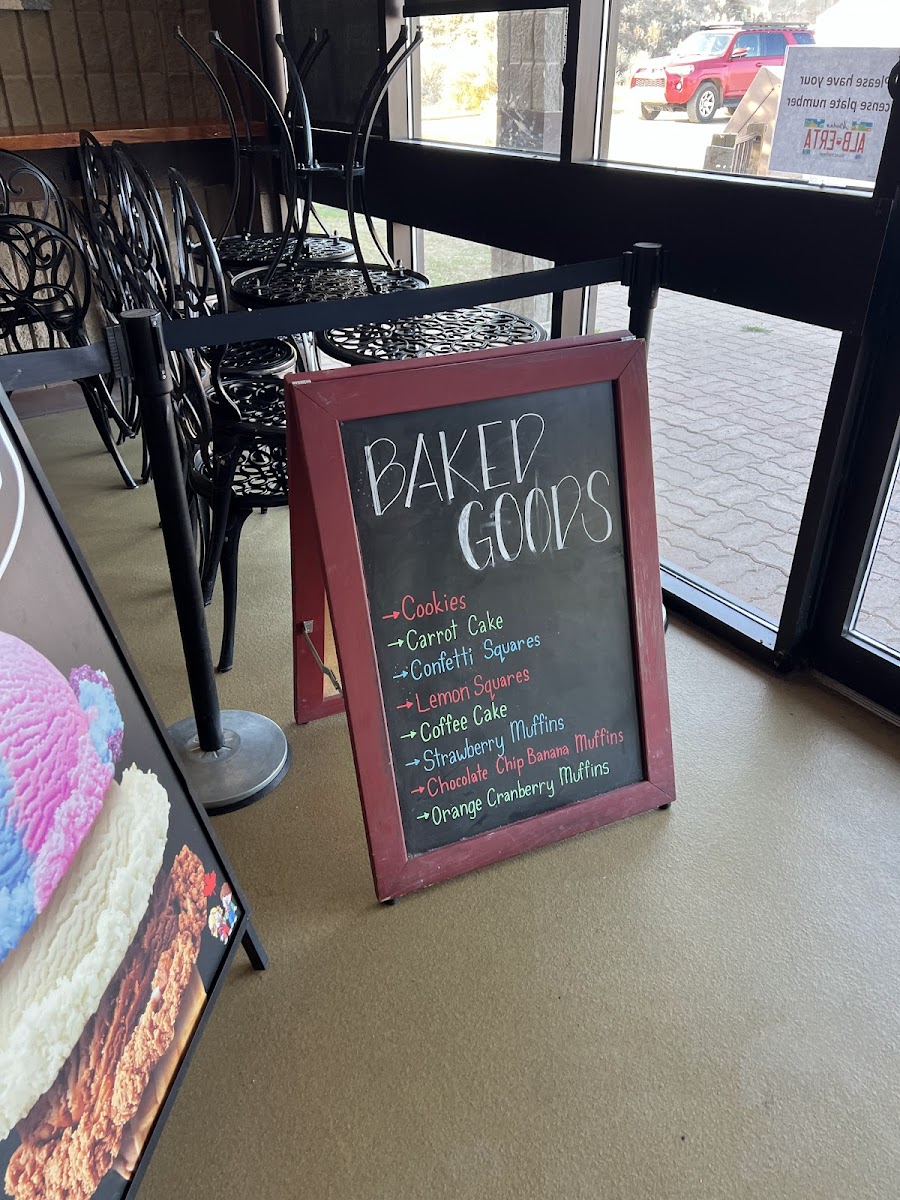 Please have your
license plate number
Alberta
ALB ERTA
BAKED
GOODS
→Cookies
→Carrot Cake
→Confetti Squares
→Lemon Squares
→Coffee Cake
→Strawberry Muffins
→Chocolate Chip Banana Muffins
→Orange Cranberry Muffins